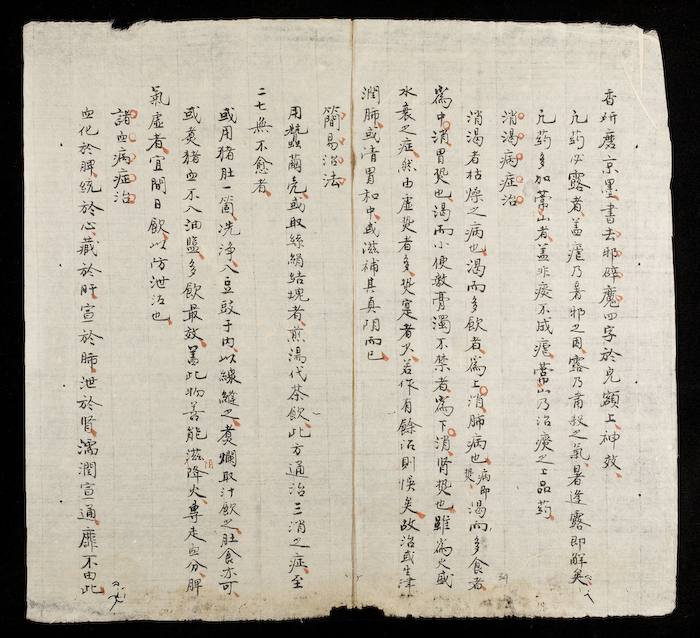 香研磨京墨書去邪辟魔四字於兒額上神效
凡藥必露者蓋瘧乃暑邪之因露乃肅殺之氣暑逢露即解矣
凡藥多加常山者蓋非痰不成瘧常山乃治痰之上品藥
消渴病症治
消渴者枯燥之病也渴而多飲者為上消肺病也渴而多食者
為中消胃熱也渴而小便數膏濁不禁者為下消腎熱也雖為火或
水衰之症然由虛熱者多熱實者少若作有餘治則悞矣故治或生津
潤肺或清胃和中或滋補其真阴而已
簡易治法
用蚕繭壳或取絲綿結塊者煎湯代茶飲此方通治三消之症至
二七無不愈者
或用猪肚一箇洗淨入豆豉于內以線縫之煮爛取汁飲之肚食亦可
或煮猪血不入油盬多飲最效蓋此物善能滋阴降火專走血分脾
氣虛者宜間日飲以防泄泻也
諸血病症治
血化於脾統於心藏於肝宣於肺泄於腎濡潤宣通靡不由此